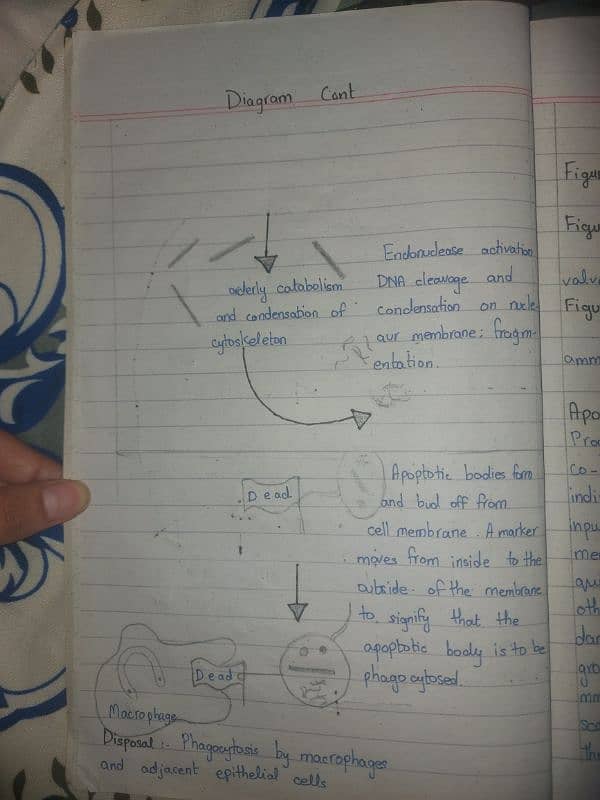 Diagram Cont
orderly catabolism
and condensation of
cytoskeleton
Endonuclease activation
DNA cleavage and
condensation on nucle-
aur membrane; fragm-
entation.
Dead
Apoptotic bodies form
and bud off from
cell membrane. A marker
moves from inside to the
outside of the membrane
to signify that the
apoptotic body is to be
phagocytosed.
Dead
Macrophage
Disposal :- Phagocytosis by macrophages
and adjacent epithelial cells
Figur
Figu
valv
Figu
amm
Apo
Pro
co-
indi
inpu
me
oth
dar
gro